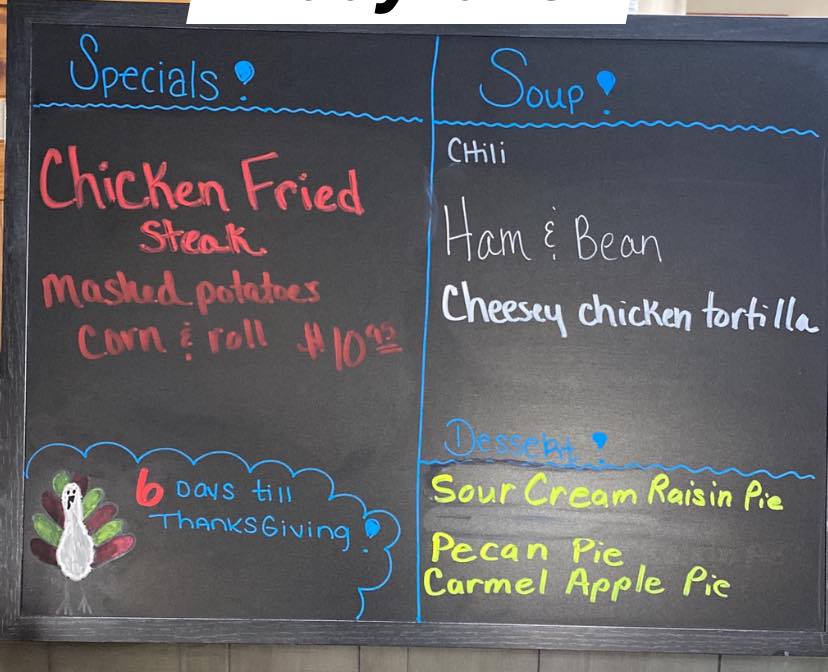 Specials!
Chicken Fried
Steak
Mashed potatoes
Corn & roll $10.95
6 Days till
ThanksGiving!
Soup!
CHili
Ham & Bean
Cheesey chicken tortilla
Dessert!
Sour Cream Raisin Pie
Pecan Pie
Carmel Apple Pie